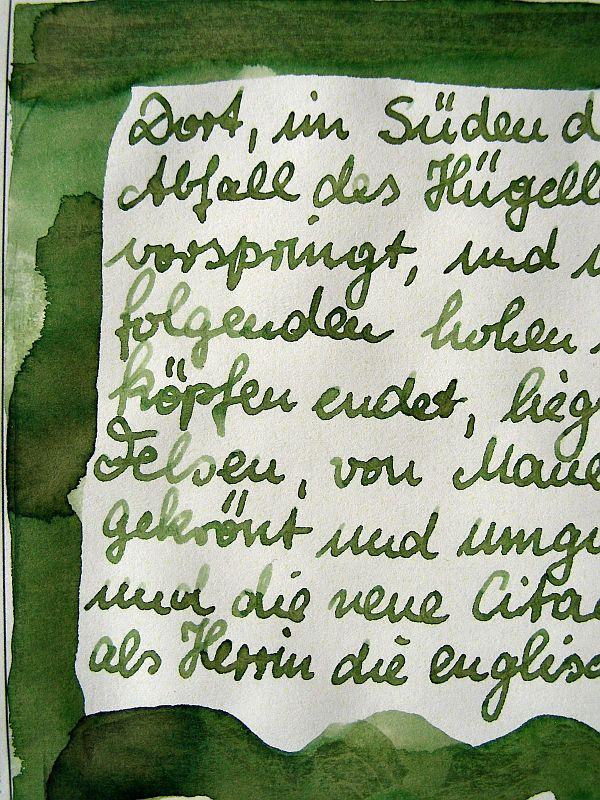 Dort, im Süden d
Abfall des Hügell
vorspringt, und
folgenden hohen
köpfen endet, lieg
Felsen, von Maue
gekrönt und umgu
und die neue Cita
als Herrin die englisc